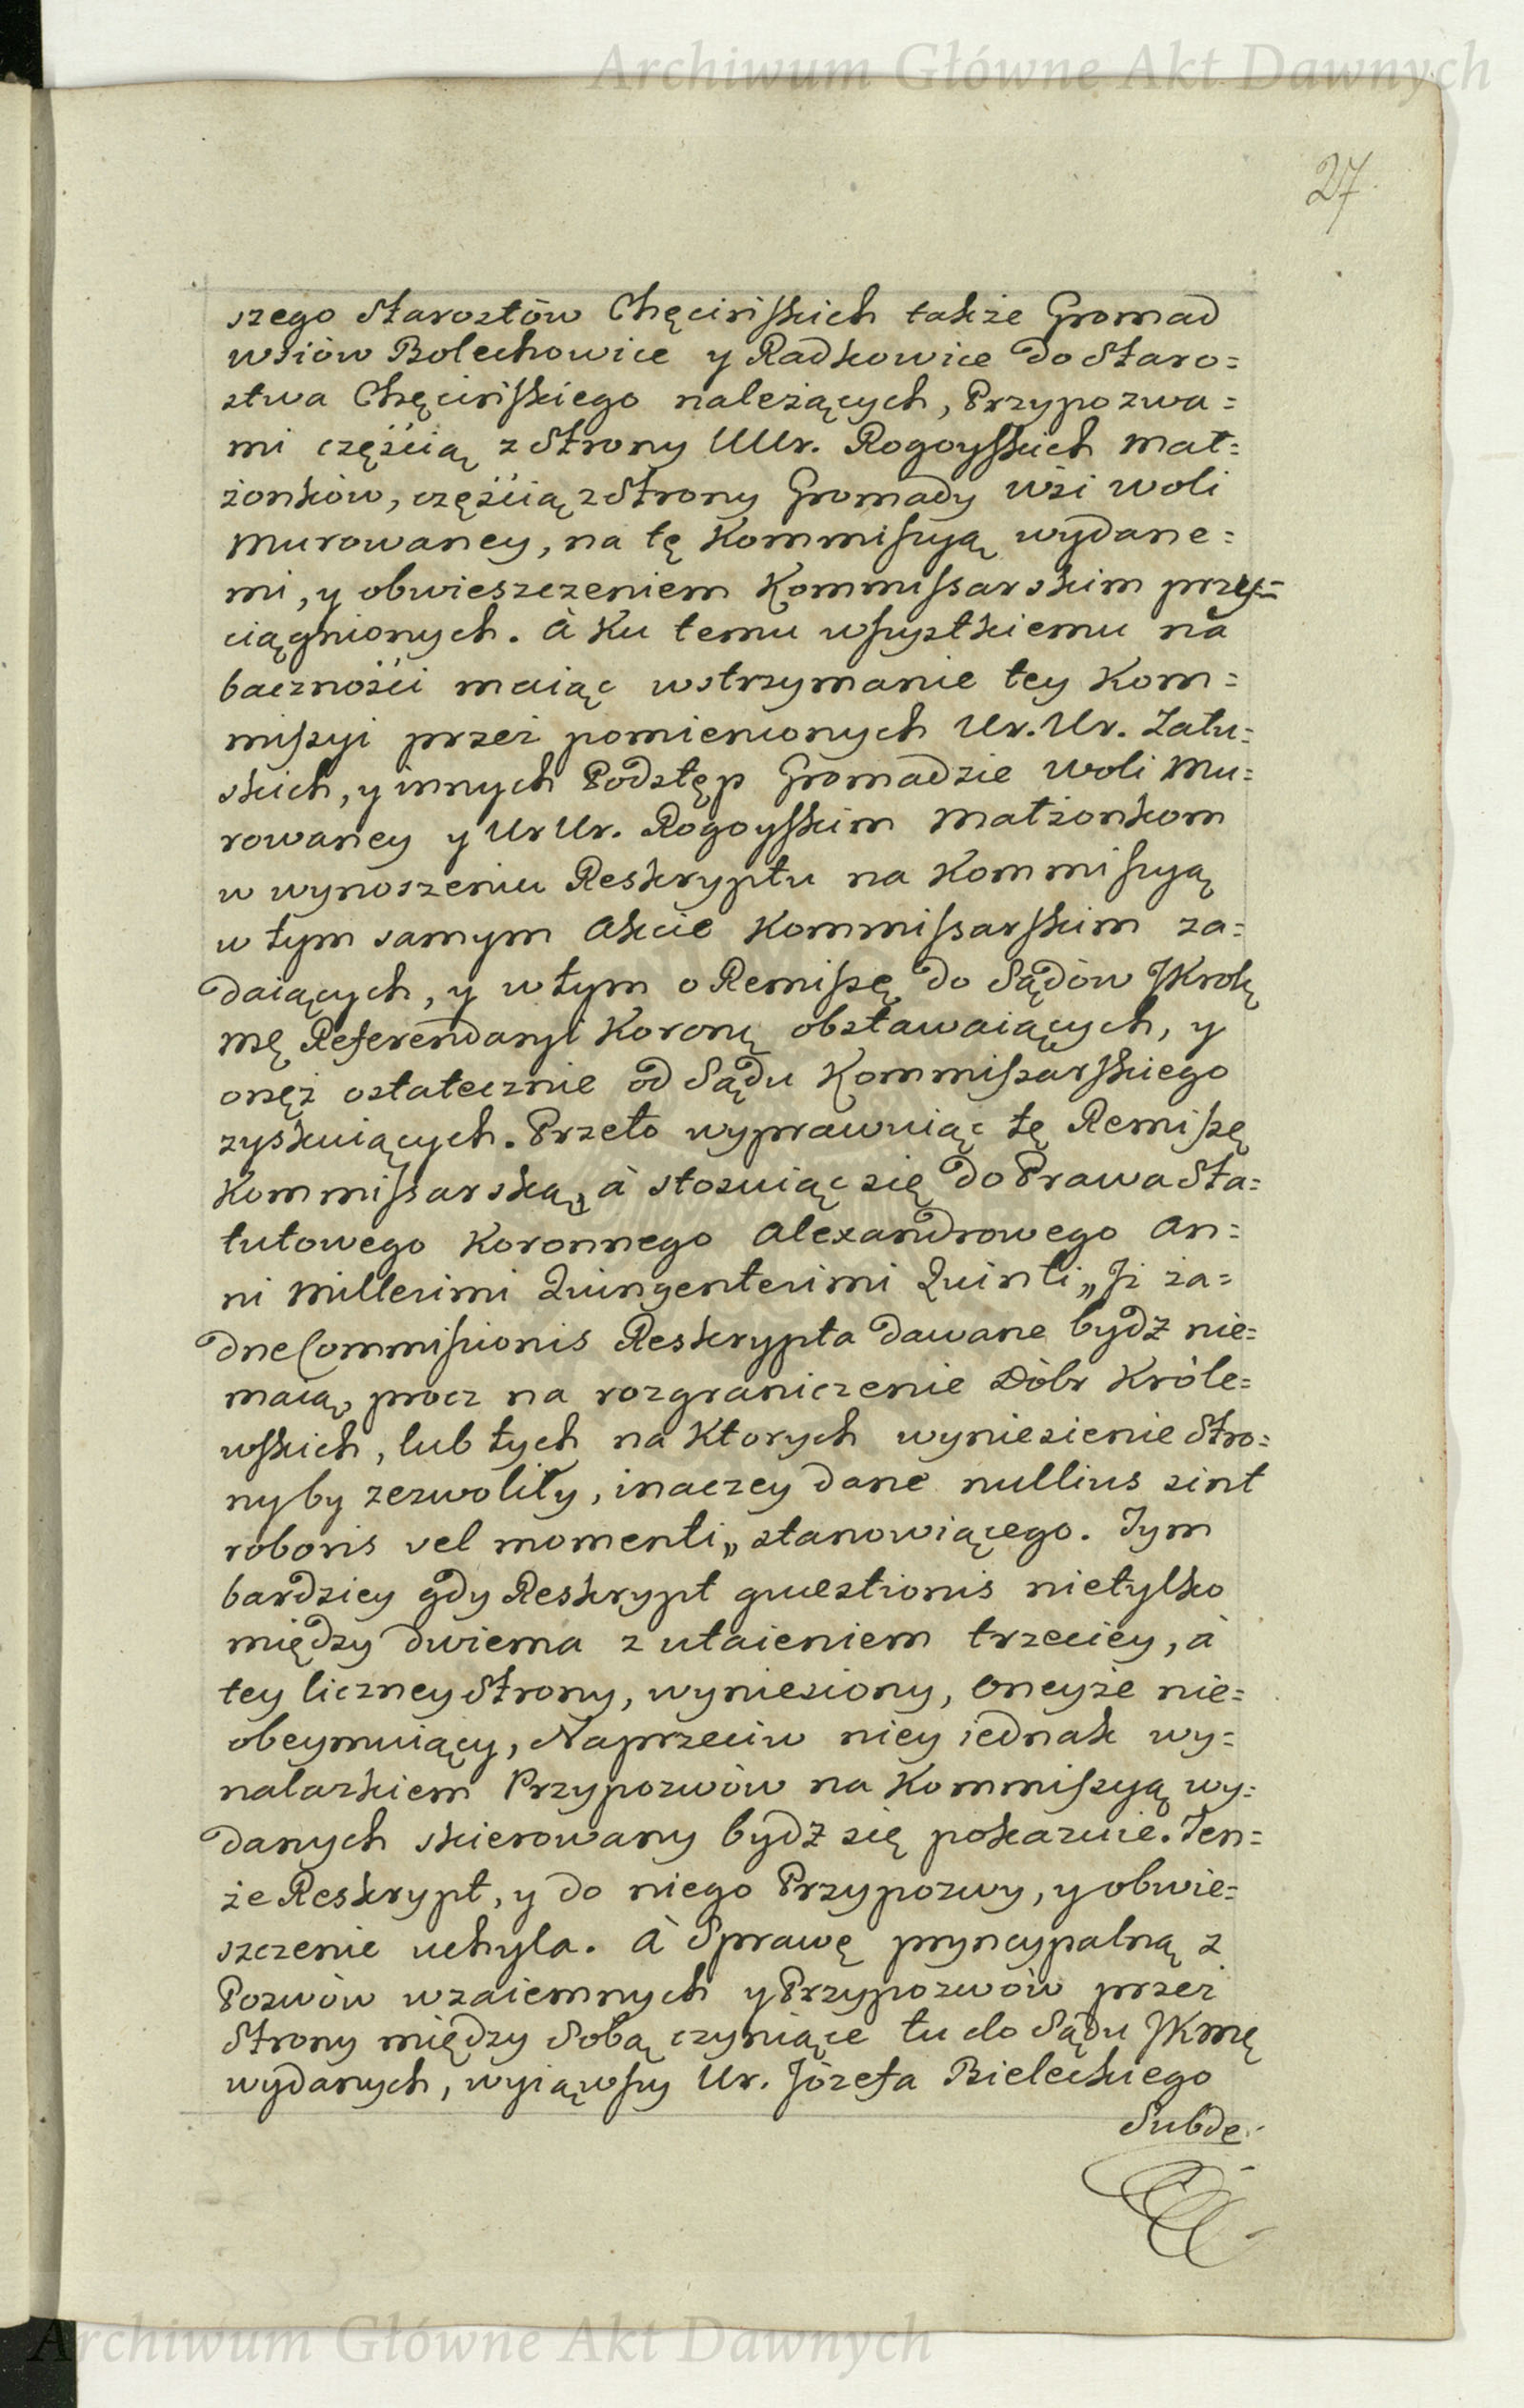 Archiwum Główne Akt Dawnych
27.
szego Starostów Chęcińskich także Gromad
wsiów Bolechowice y Radkowice do Staro=
stwa Chęcińskiego należących, Przypozwa=
mi częścią z Strony UUr. Rogoyskich Mał=
żonków, częścią z Strony Gromady Wsi Woli
Murowaney, na tę Kommissyą wydane=
mi, y obwieszczeniem Kommissarskim przy=
ciągnionych. à Ku temu wszystkiemu na
baczności maiąc wstrzymanie tey Kom=
missyi przez pomienionych Ur. Ur. Zału=
skich, y innych Podstęp Gromadzie Woli Mu=
rowaney y Ur Ur. Rogoyskim Małżonkom
w wynoszeniu Reskryptu na Kommissyą
w tym samym Akcie Kommissarskim za=
daiących, y w tym o Remissę do Sądów JKrolę
mę Referendaryi Koronę obstawaiących, y
onęż ostatecznie od Sądu Kommissarskiego
zyskuiących. Przeto wyprawuiąc tę Remissę
Kommissarską, à stosuiąc się do Prawa Sta=
tutowego Koronnego Alexandrowego An=
ni Millesimi Quingentesimi Quinti „Iż ża=
dne Commissionis Reskrypta dawane bydź nie=
maią, procz na rozgraniczenie Dóbr Króle=
wskich, lub tych na Ktorych wyniesienie Stro=
ny by zezwoliły, inaczey dane nullius sint
roboris vel momenti„ stanowiącego. Tym
bardziey gdy Reskrypt questionis nietylko
między dwiema z utaieniem trzeciey, à
tey liczney Strony, wyniesiony, Oneyże nie=
obeymuiący, Naprzeciw niey iednak wy=
nalazkiem Przypozwów na Kommissyą wy=
danych skierowany bydź się pokazuie. Ten=
że Reskrypt, y do niego Przypozwy, y obwie=
szczenie uchyla. à Sprawę pryncypalną z
Pozwów wzaiemnych y Przypozwów przez
Strony między Sobą czyniące tu do Sądu JKmę
wydanych, wyiąwszy Ur. Józefa Bieleckiego
Subde=
Archiwum Główne Akt Dawnych